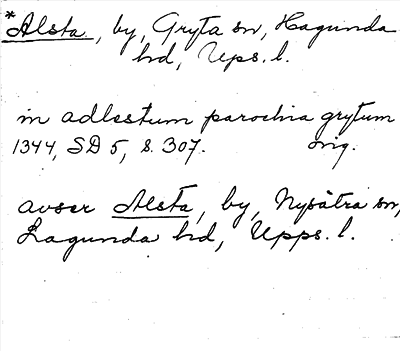 *Alsta, by, Gryta sn, Hagunda
hd, Upps. l.
in adlestum parochia grytum
1344, SD 5, s. 307. orig.
avser Alsta, by, Nysätra sn,
Lagunda hd, Upps. l.